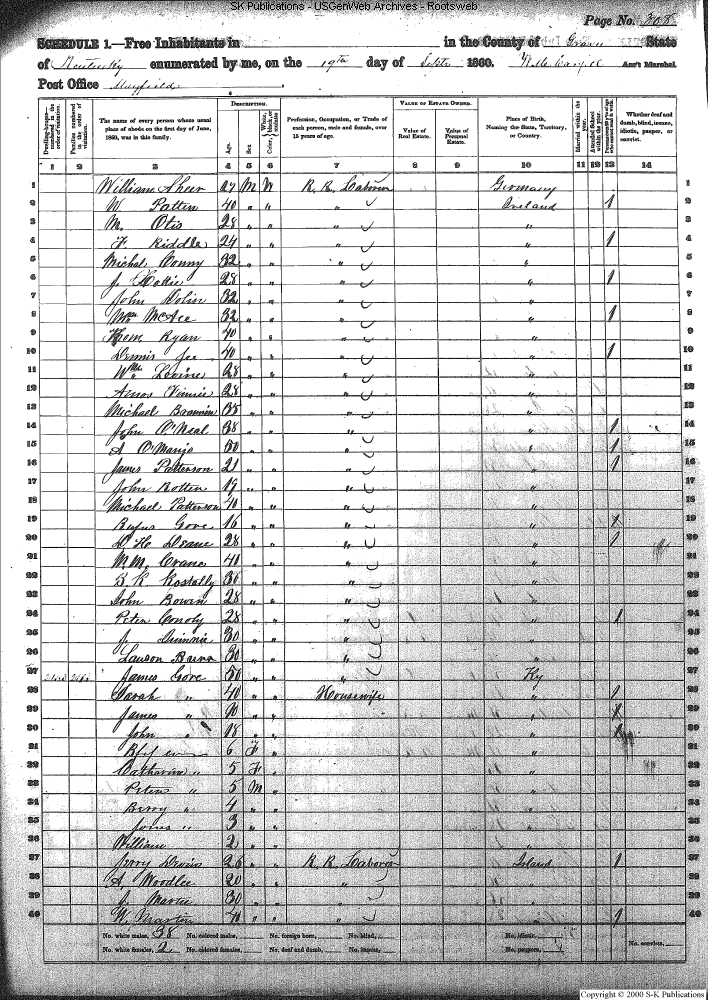 SK Publications - USGenWeb Archives - Rootsweb
Page No. 308
SCHEDULE 1.—Free Inhabitants in in the County of Graves State
of Kentucky enumerated by me, on the 19th day of Septr 1860. Ass't Marshal.
Post Office Mayfield
Dwelling-houses—numbered in the order of visitation.
Families numbered in the order of visitation.
The name of every person whose usual place of abode on the first day of June, 1860, was in this family.
DESCRIPTION.
Age.
Sex.
Color, White, black, or mulatto.
Profession, Occupation, or Trade of each person, male and female, over 15 years of age.
VALUE OF ESTATE OWNED.
Value of Real Estate.
Value of Personal Estate.
Place of Birth, Naming the State, Territory, or Country.
Married within the year.
Attended School within the year.
Whether deaf and dumb, blind, insane, idiotic, pauper, or convict.
1 2 3 4 5 6 7 8 9 10 11 12 13 14
1 William Sheer 27 M W R. R. Laborer Germany 1
2 W. Patten 40 " " " Ireland / 2
3 M. Otis 28 " " " " 3
4 F. Riddle 24 " " " " / 4
5 Michal Conny 32 " " " " 5
6 J. 28 " " " " / 6
7 John Dolin 32 " " " " 7
8 Wm McAee 32 " " " " / 8
9 Ryan 40 " " " " 9
10 Dennis 40 " " " " / 10
11 Wm Levine 28 " " " " 11
12 Amos Vinnie 28 " " " " 12
13 Michael Brannin 35 " " " " 13
14 John O'Neal 38 " " " " / 14
15 A O'Manjo 50 " " " " / 15
16 James Patterson 21 " " " " / 16
17 John Rotten 19 " " " " 17
18 Michael Patterson 40 " " " " 18
19 Rufus Gove 16 " " " " / 19
20 D. H. Deane 28 " " " " / 20
21 M. M. Crane 40 " " " " 21
22 S. K. Kostally 30 " " " " 22
23 John Bowen 28 " " " " 23
24 Peter Conoly 28 " " " " / 24
25 J. Quinnie 30 " " " " 25
26 Lawson Bunn 30 " " " " 26
27 James Gore 50 " " " Ky 27
28 Sarah " 40 " " Housewife " / 28
29 James " " " " / 29
30 John " 18 " " " / 30
31 6 F " " 31
32 Catharine " 5 F " " 32
33 Peter " 5 M " " 33
34 Berry " 4 " " " 34
35 Jones " 3 " " " 35
36 William 2 " " " 36
37 Jerry 26 " " R. R. Laborer Island / 37
38 A. Woodlee 20 " " " " 38
39 J. Martie 30 " " " " 39
40 W. Martin 40 " " " " / 40
No. white males, 38 No. colored males, No. foreign born, No. blind, No. idiotic,
No. white females, 2 No. colored females, No. deaf and dumb, No. insane, No. paupers, No. convicts,
Copyright © 2000 S-K Publications